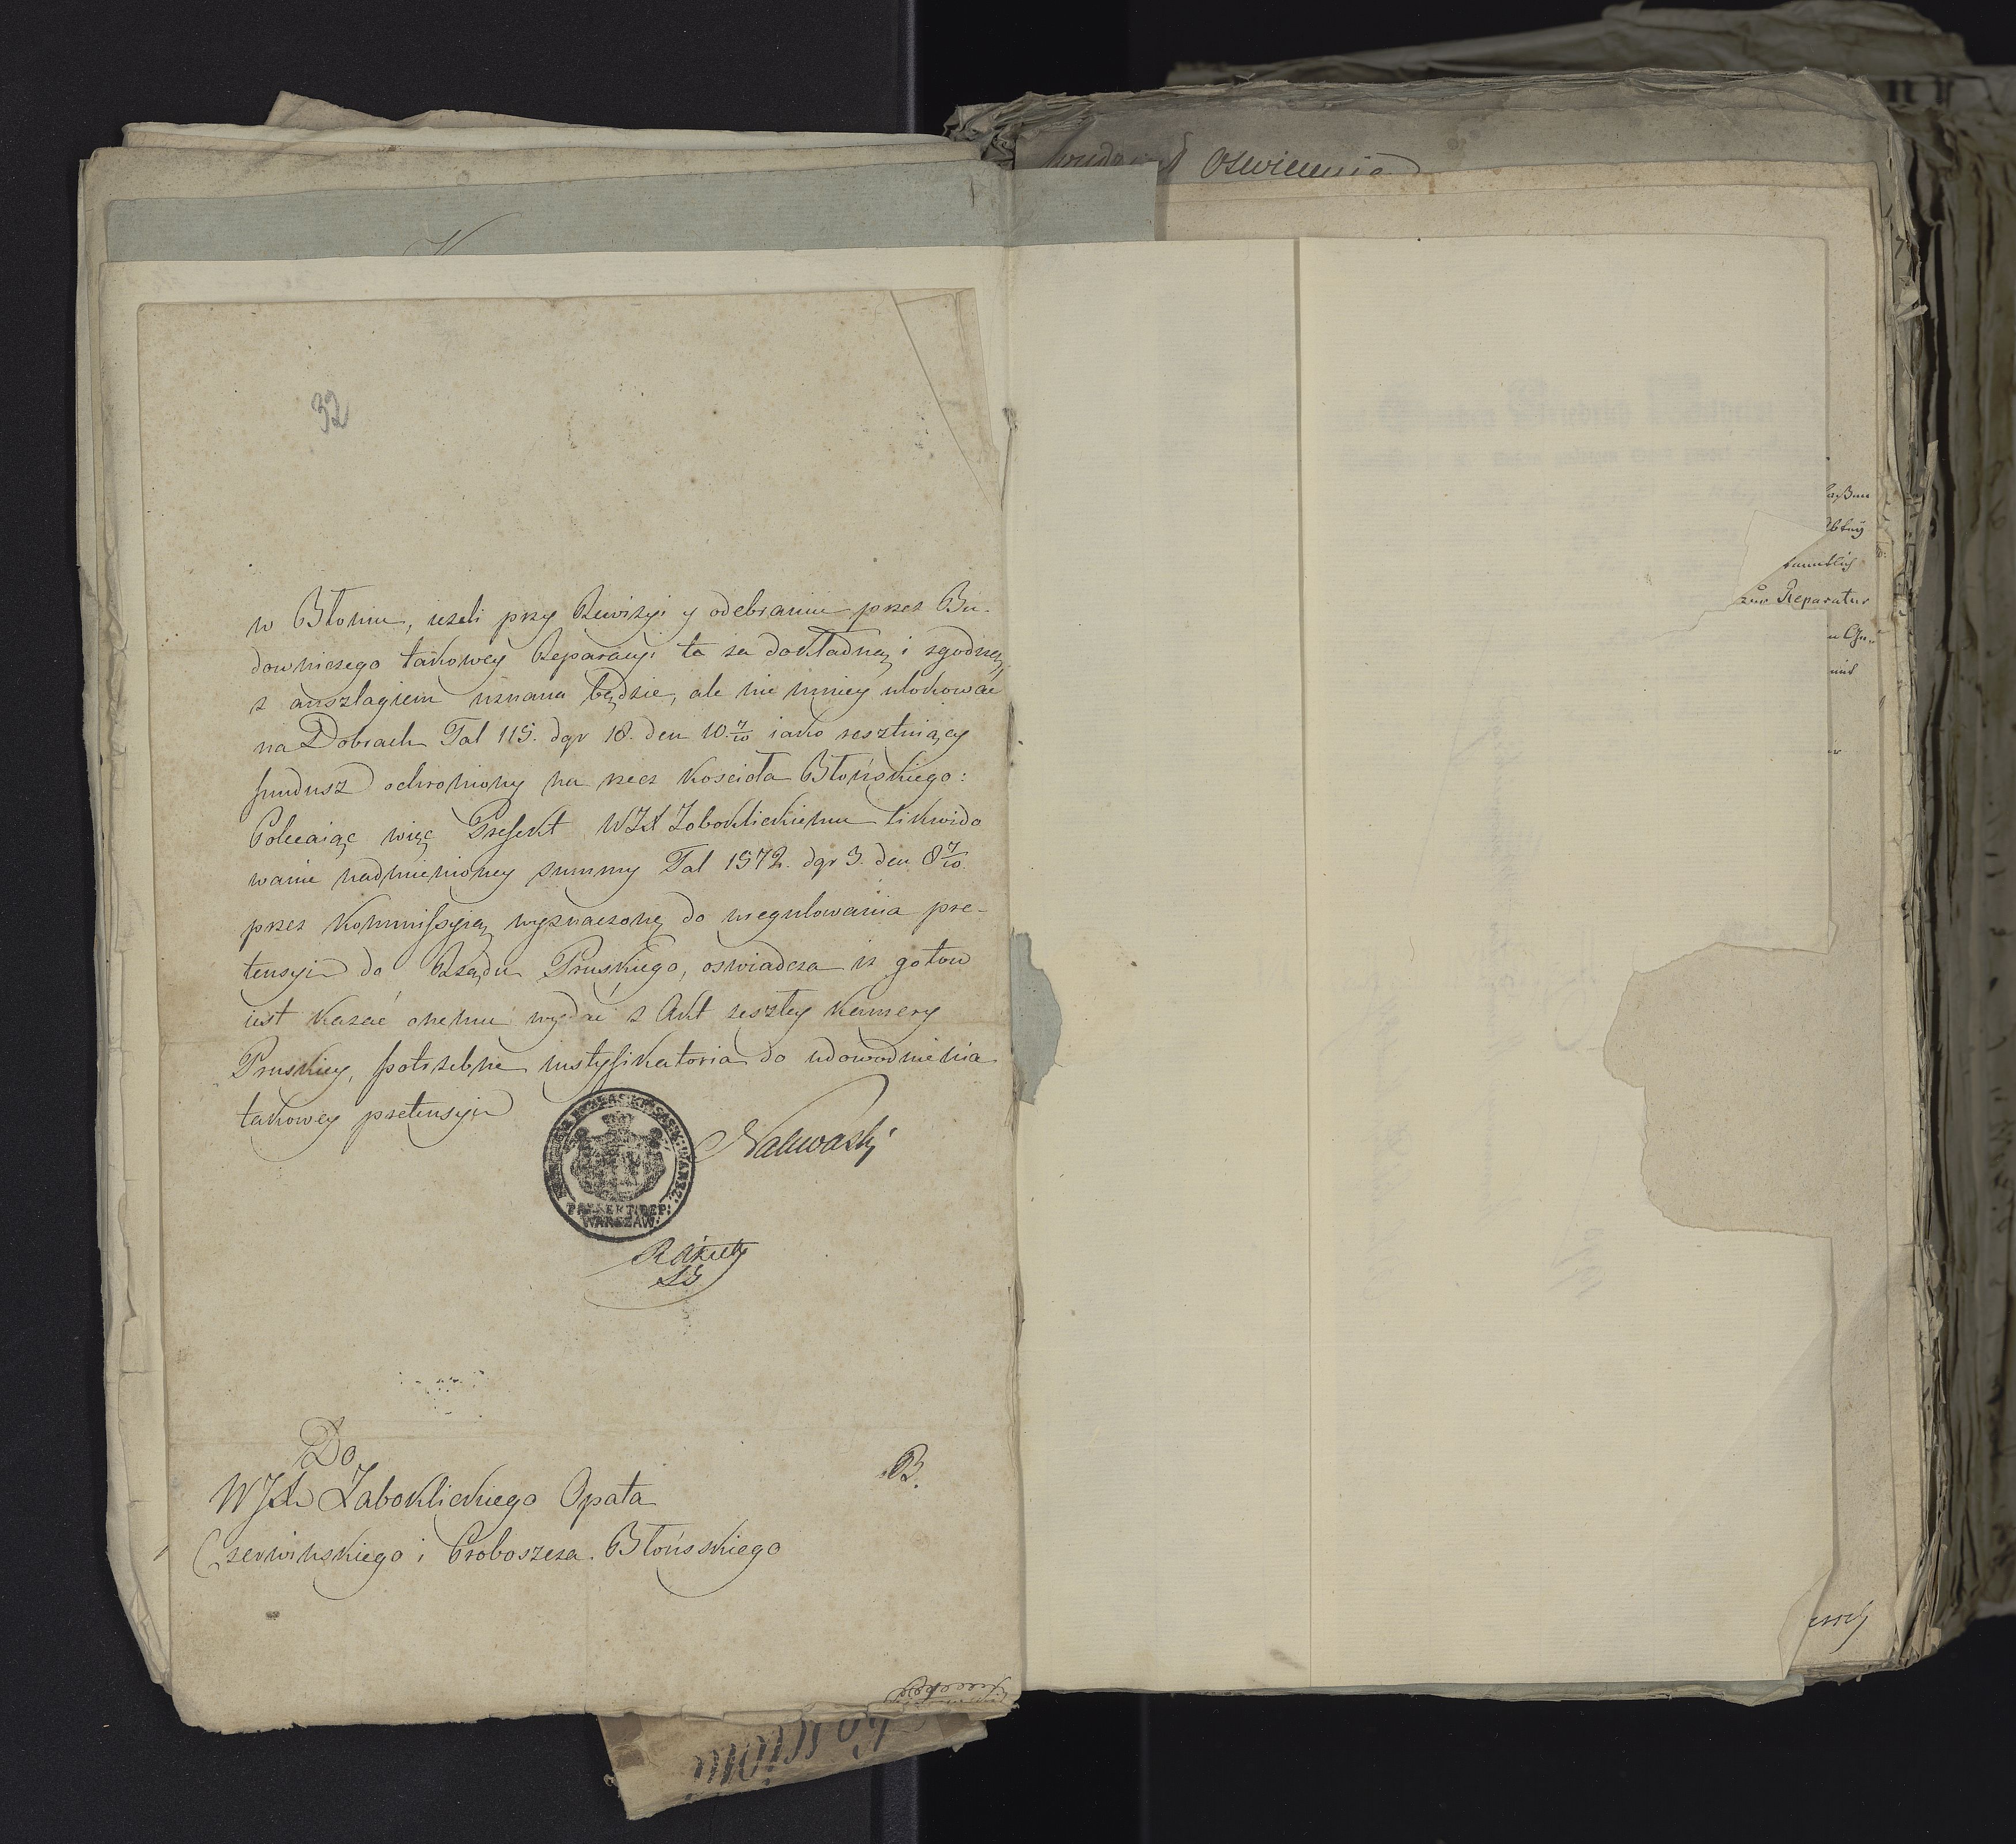 Oswiecenia
32
w Błoniu, ieżeli przy Rewizyi y odebraniu przez Bu-
downiczego takowey Reparacyi ta za dokładną i zgodną
z anszlagiem uznana będzie, ale nie mniey ulokować
na Dobrach Tal 115. dgr 18. den 10 7/10 iako resztuiący
fundusz ochroniony na rzecz Kościoła Błońskiego:
Polecaiąc więc Prefekt WJX Zaboklickiemu likwido
wanie nadmienioney summy Tal 1572. dgr 3. den 8 7/10
przez Kommissyią wyznaczoną do uregulowania pre-
tensyi do Rządu Pruskiego, oswiadcza iż gotow
iest kazać onemu wydać z Akt zeszłey Kamery
Pruskiey, potrzebne iustyfikatoria do udowodnienia
takowey pretensyi
Nakwaski
PREFEKT DEP:
WARSZAW:
Do
WJX Zaboklickiego Opata
Czerwinskiego i Proboszcza Błońskiego
B.
zur Reparatur